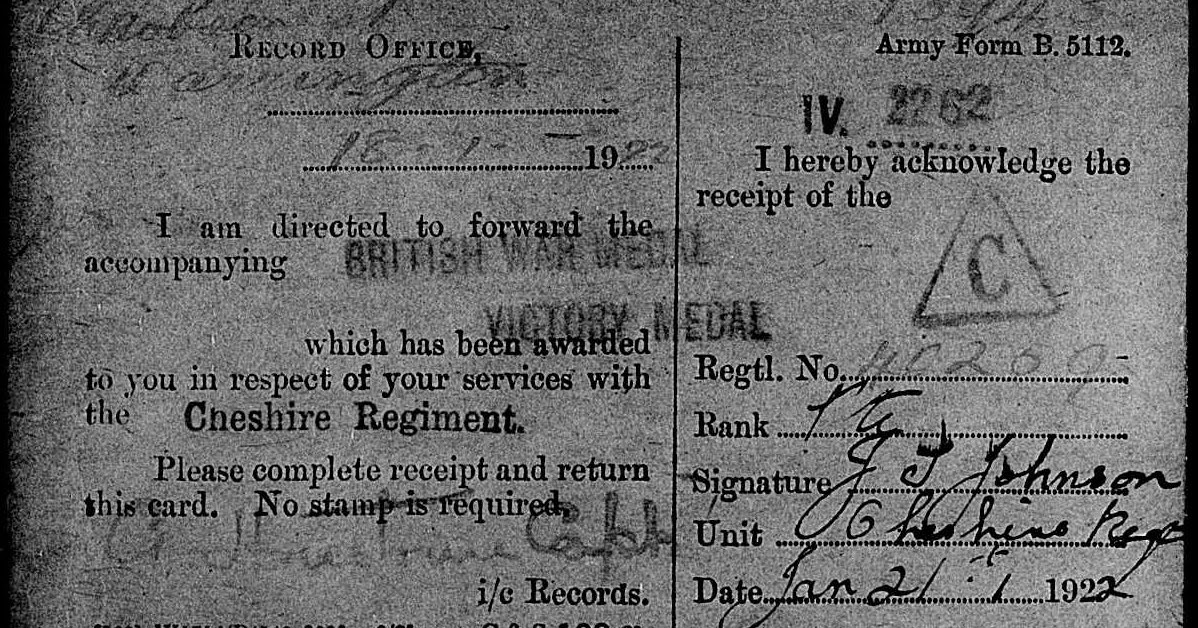 RECORD OFFICE,
Warrington
18 - 1 - 1922
I am directed to forward the
accompanying BRITISH WAR MEDAL
VICTORY MEDAL
which has been awarded
to you in respect of your services with
the Cheshire Regiment.
Please complete receipt and return
this card. No stamp is required.
Capt
i/c Records.
Army Form B. 5112.
IV. 2262
I hereby acknowledge the
receipt of the
C
Regtl. No.
Rank
Signature J T Johnson
Unit Cheshire Regt
Date Jan 21 1922